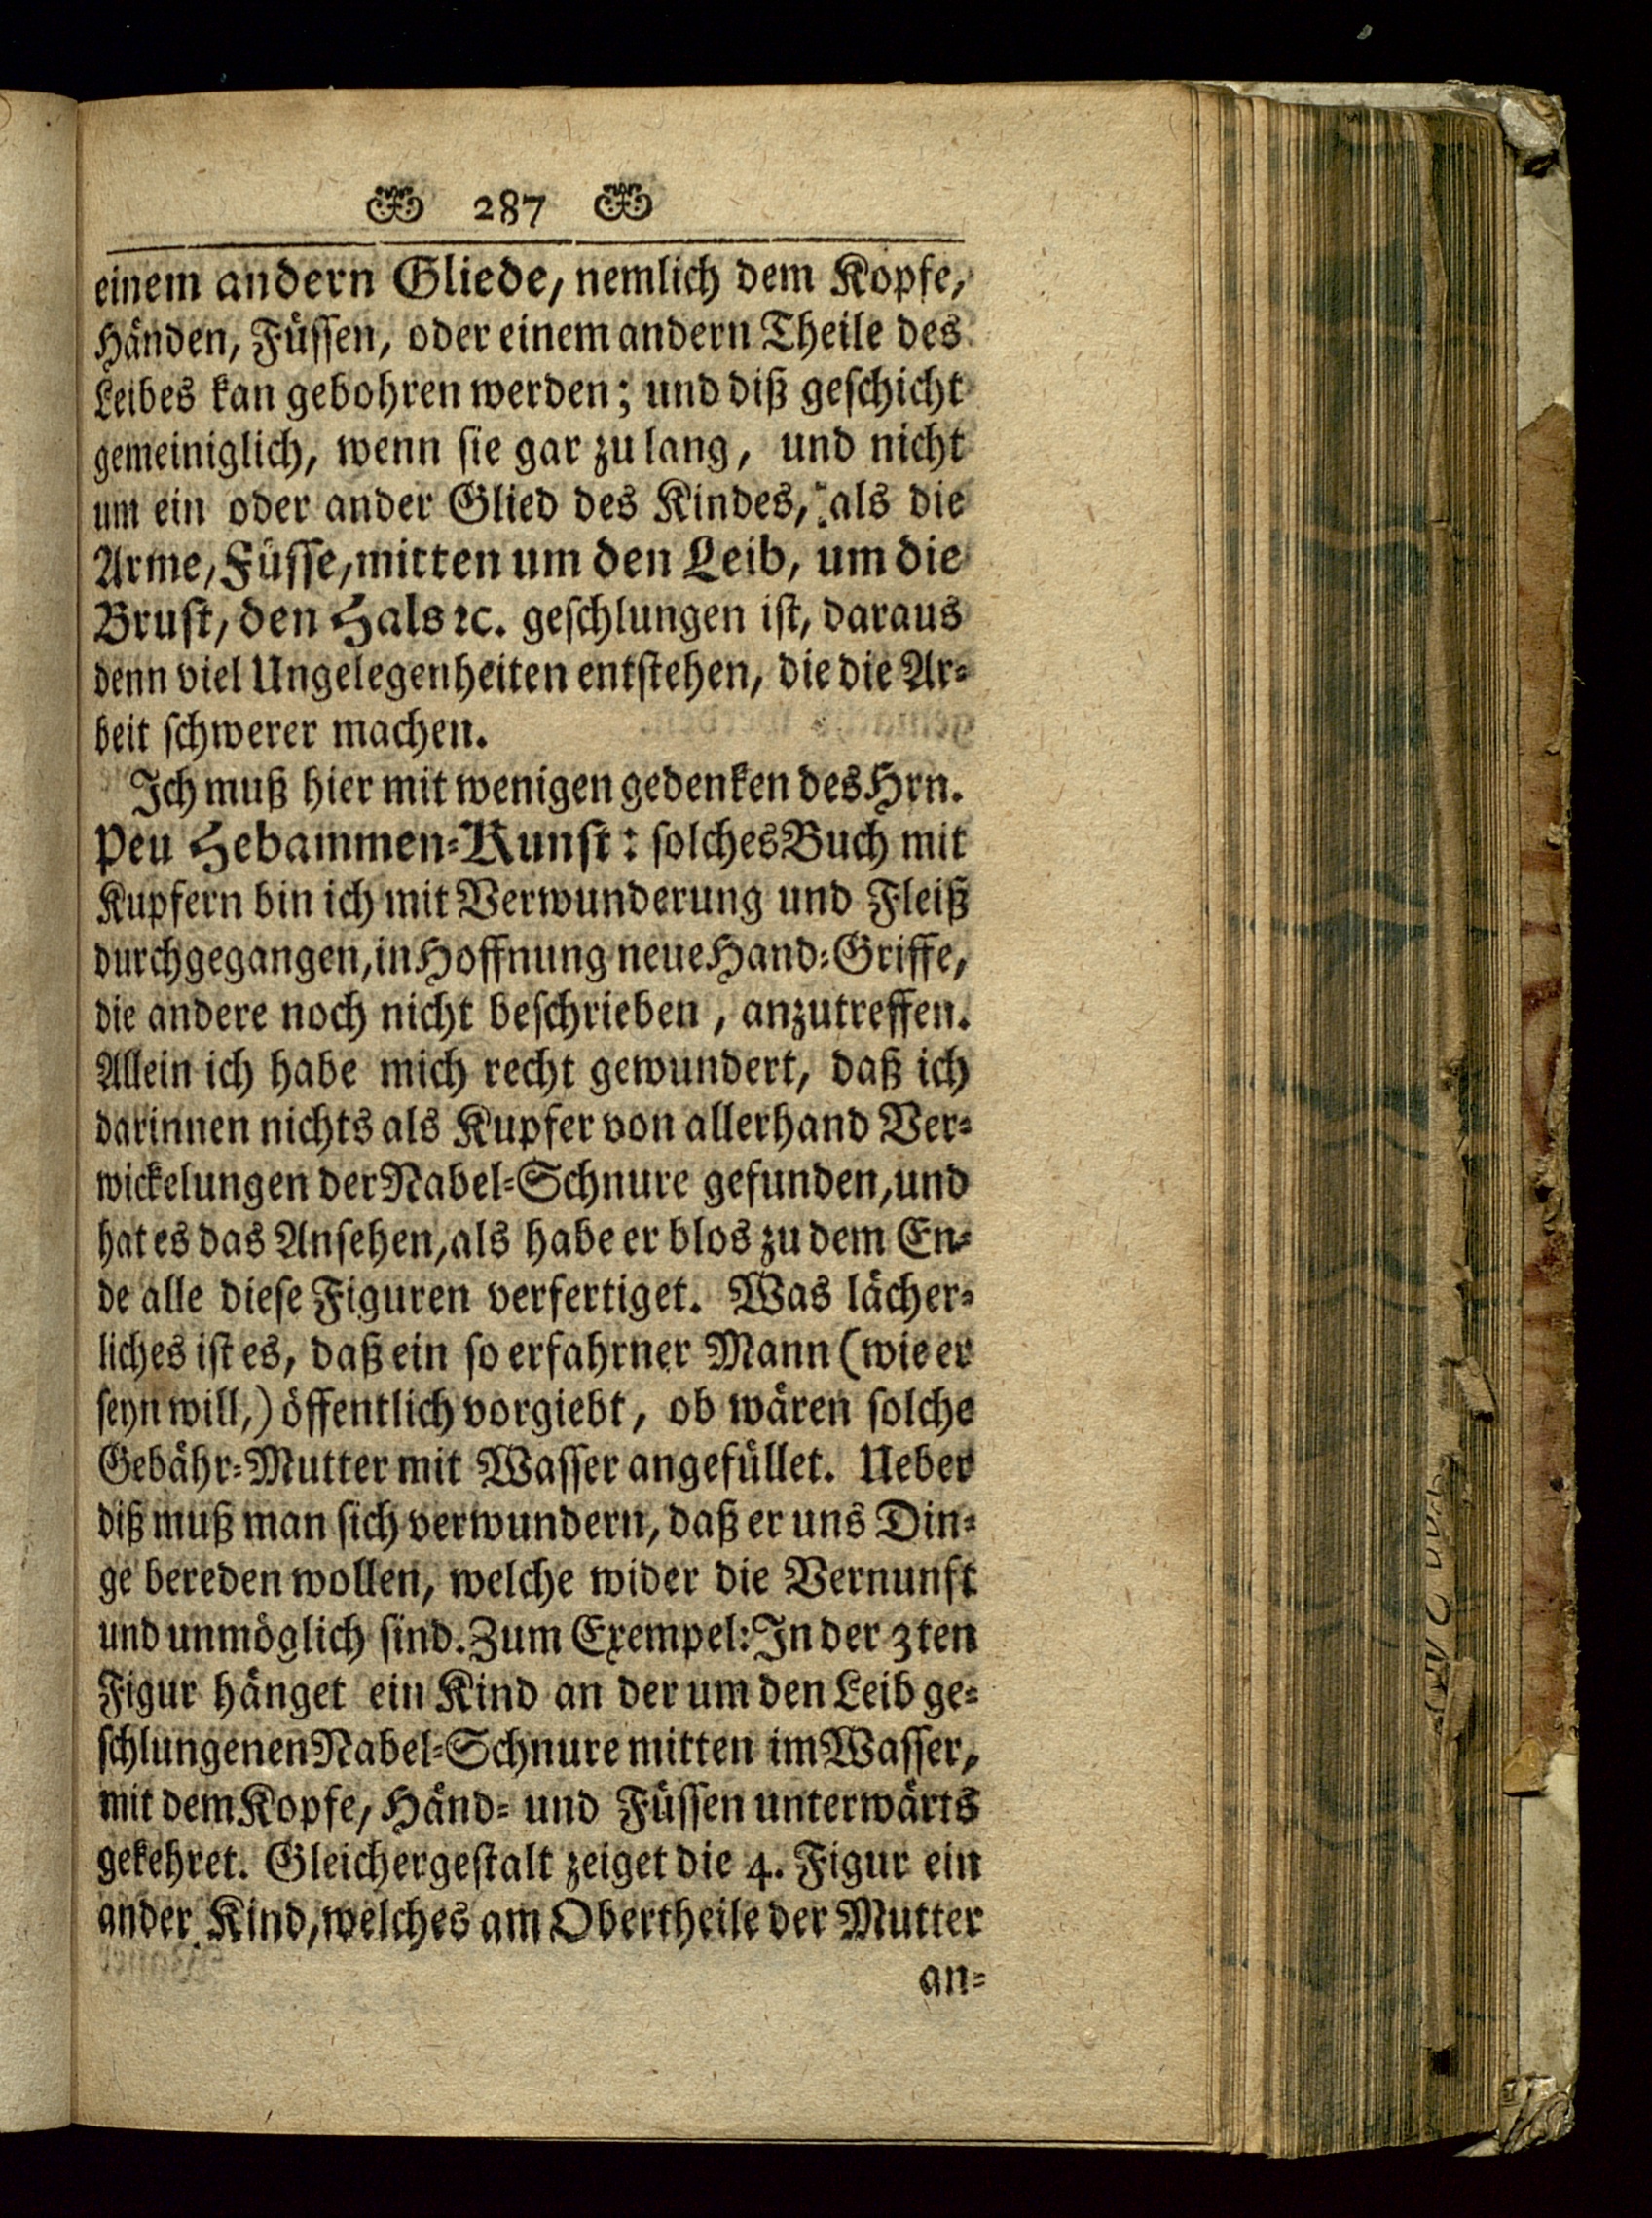 287
einem andern Gliede, nemlich dem Kopfe,
Händen, Füssen, oder einem andern Theile des
Leibes kan gebohren werden; und diß geschicht
gemeiniglich, wenn sie gar zu lang, und nicht
um ein oder ander Glied des Kindes, als die
Arme, Füsse, mitten um den Leib, um die
Brust, den Hals ꝛc. geschlungen ist, daraus
denn viel Ungelegenheiten entstehen, die die Ar-
beit schwerer machen.
Ich muß hier mit wenigen gedenken des Hrn.
Peu Hebammen-Kunst: solches Buch mit
Kupfern bin ich mit Verwunderung und Fleiß
durchgegangen, in Hoffnung neue Hand-Griffe,
die andere noch nicht beschrieben, anzutreffen.
Allein ich habe mich recht gewundert, daß ich
darinnen nichts als Kupfer von allerhand Ver-
wickelungen der Nabel-Schnure gefunden, und
hat es das Ansehen, als habe er blos zu dem En-
de alle diese Figuren verfertiget. Was lächer-
liches ist es, daß ein so erfahrner Mann (wie er
seyn will,) öffentlich vorgiebt, ob wären solche
Gebähr-Mutter mit Wasser angefüllet. Ueber
diß muß man sich verwundern, daß er uns Din-
ge bereden wollen, welche wider die Vernunft
und unmöglich sind. Zum Exempel: In der 3ten
Figur hänget ein Kind an der um den Leib ge-
schlungenen Nabel-Schnure mitten im Wasser,
mit dem Kopfe, Händ- und Füssen unterwärts
gekehret. Gleichergestalt zeiget die 4. Figur ein
ander Kind, welches am Obertheile der Mutter
an-